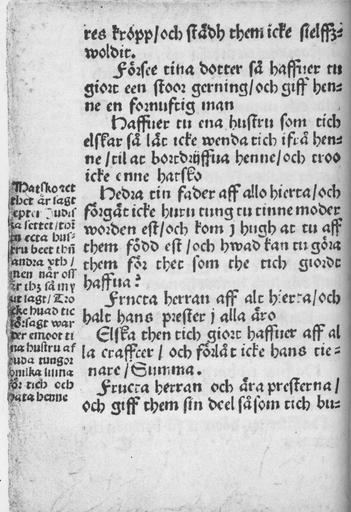 res kröpp/och städh them icke sielffz
woldit.
Försee tina dotter så haffuer tu
giort een stoor gerning/och giff hen-
ne en fornuftig man
Haffuer tu ena hustru som tich
elskar så låt icke wenda tich ifrå hen-
ne/til at bortdrijffua henne/och troo
icke enne hatsko
Hedra tin fader aff allo hierta/och
förgät icke huru tung tu tinne moder
worden est/och kom j hugh at tu aff
them född est/och hwad kan tu göra
them för thet som the tich giordt
haffua?
Fructa herran aff alt hierta/och
halt hans prester j alla äro
Elska then tich giort haffuer aff al
la craffter/och förlåt icke hans tie-
nare/Summa.
Fructa herran och ära presterna/
och giff them sin deel såsom tich bu-
Hatskoret
thet är sagt
epter Judis
ka settet/thr
en ecta hus-
tru heet thn
andra
när
är thz så my
sagt/Tro
icke huad
försagt war
der emoot ti
na hustru af
onda tungor
huilka
för tich och
hata henne